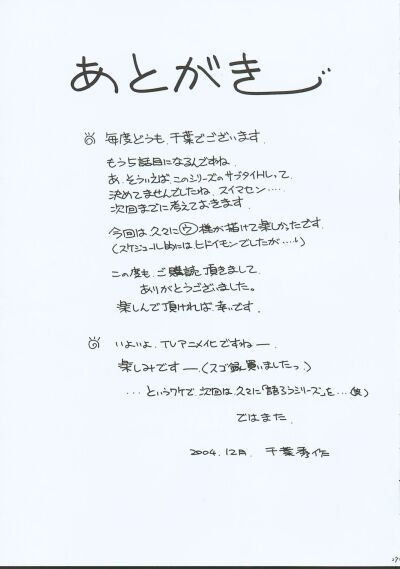 あとがき
◎ 毎度どうも、千葉でございます。
もう5話目になるんですね。
あ、そういえば、このシリーズのサブタイトルって、
決めてませんでしたね、スイマセン‥‥。
次回までに考えておきます。
今回は久々に㋒様が描けて楽しかったです。
(スケジュール的にはヒドイモンでしたが‥‥↓)
この度も、ご購読を頂きまして、
ありがとうございました。
楽しんで頂ければ幸いです。
◎ いよいよ、TVアニメ化ですねー、
楽しみですー、(スゴ録買いましたっ)
‥‥というワケで、次回は久々に「語ろうシリーズ」を‥‥(笑)
ではまた
2004.12月、千葉秀作